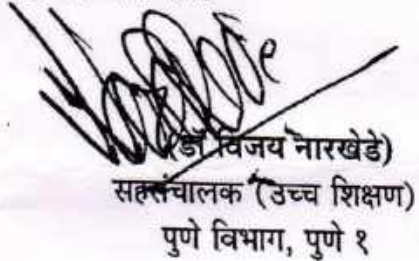 (डॉ विजय नारखेडे)
सहसंचालक (उच्च शिक्षण)
पुणे विभाग, पुणे १